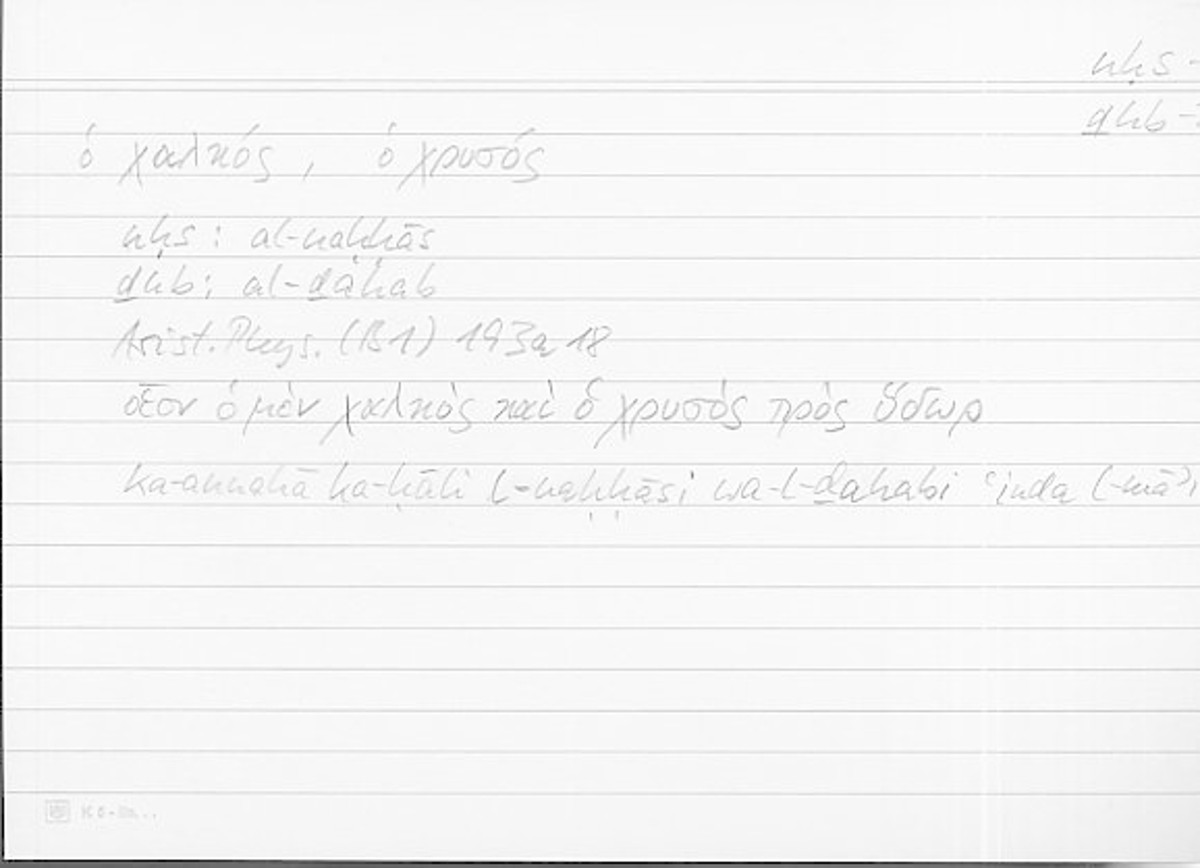 nḥs -
ḏhb -
ὁ χαλκός, ὁ χρυσός
nḥs: al-naḥḥās
ḏhb: al-ḏahab
Arist. Phys. (B1) 193a18
οἷον ὁ μὲν χαλκὸς καὶ ὁ χρυσὸς πρὸς ὕδωρ
ka-annahā ka-ḥāli l-naḥḥāsi wa-l-ḏahabi ʿinda l-māʾi